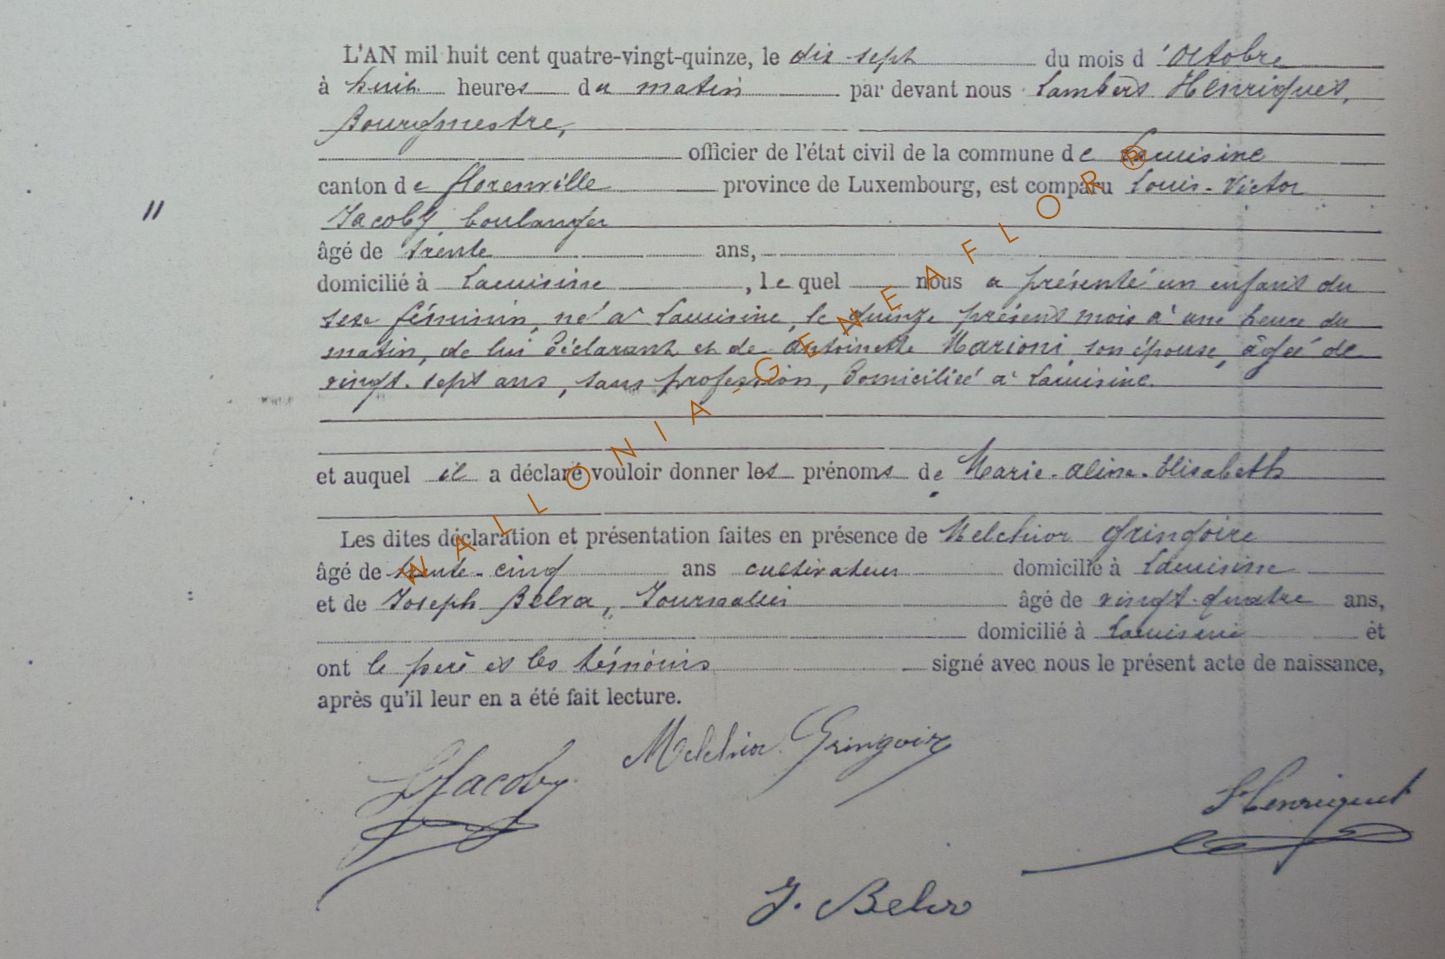 L'AN mil huit cent quatre-vingt-quinze, le dix-sept du mois d'Octobre
à huit heures du matin par devant nous Lambert Henriquet,
Bourgmestre,
officier de l'état civil de la commune de Lacuisine
canton de Florenville province de Luxembourg, est comparu Louis-Victor
Jacoby boulanger
âgé de trente ans,
domicilié à Lacuisine, lequel nous a présenté un enfant du
sexe féminin, né à Lacuisine, le quinze présent mois à une heure du
matin, de lui déclarant et de Antoinette Marioni, son épouse, âgée de
vingt-sept ans, sans profession, domiciliée à Lacuisine.
et auquel il a déclaré vouloir donner les prénoms de Marie-Aline-Elisabeth
Les dites déclaration et présentation faites en présence de Melchior Gringoire
âgé de trente-cinq ans cultivateur domicilié à Lacuisine
et de Joseph Belva, Journalier âgé de vingt-quatre ans,
domicilié à Lacuisine et
ont le père et les témoins signé avec nous le présent acte de naissance,
après qu'il leur en a été fait lecture.
Melchior Gringoire
LJacoby
LHenriquet
J. Belva
WALLONIA-GENEAFLOR®